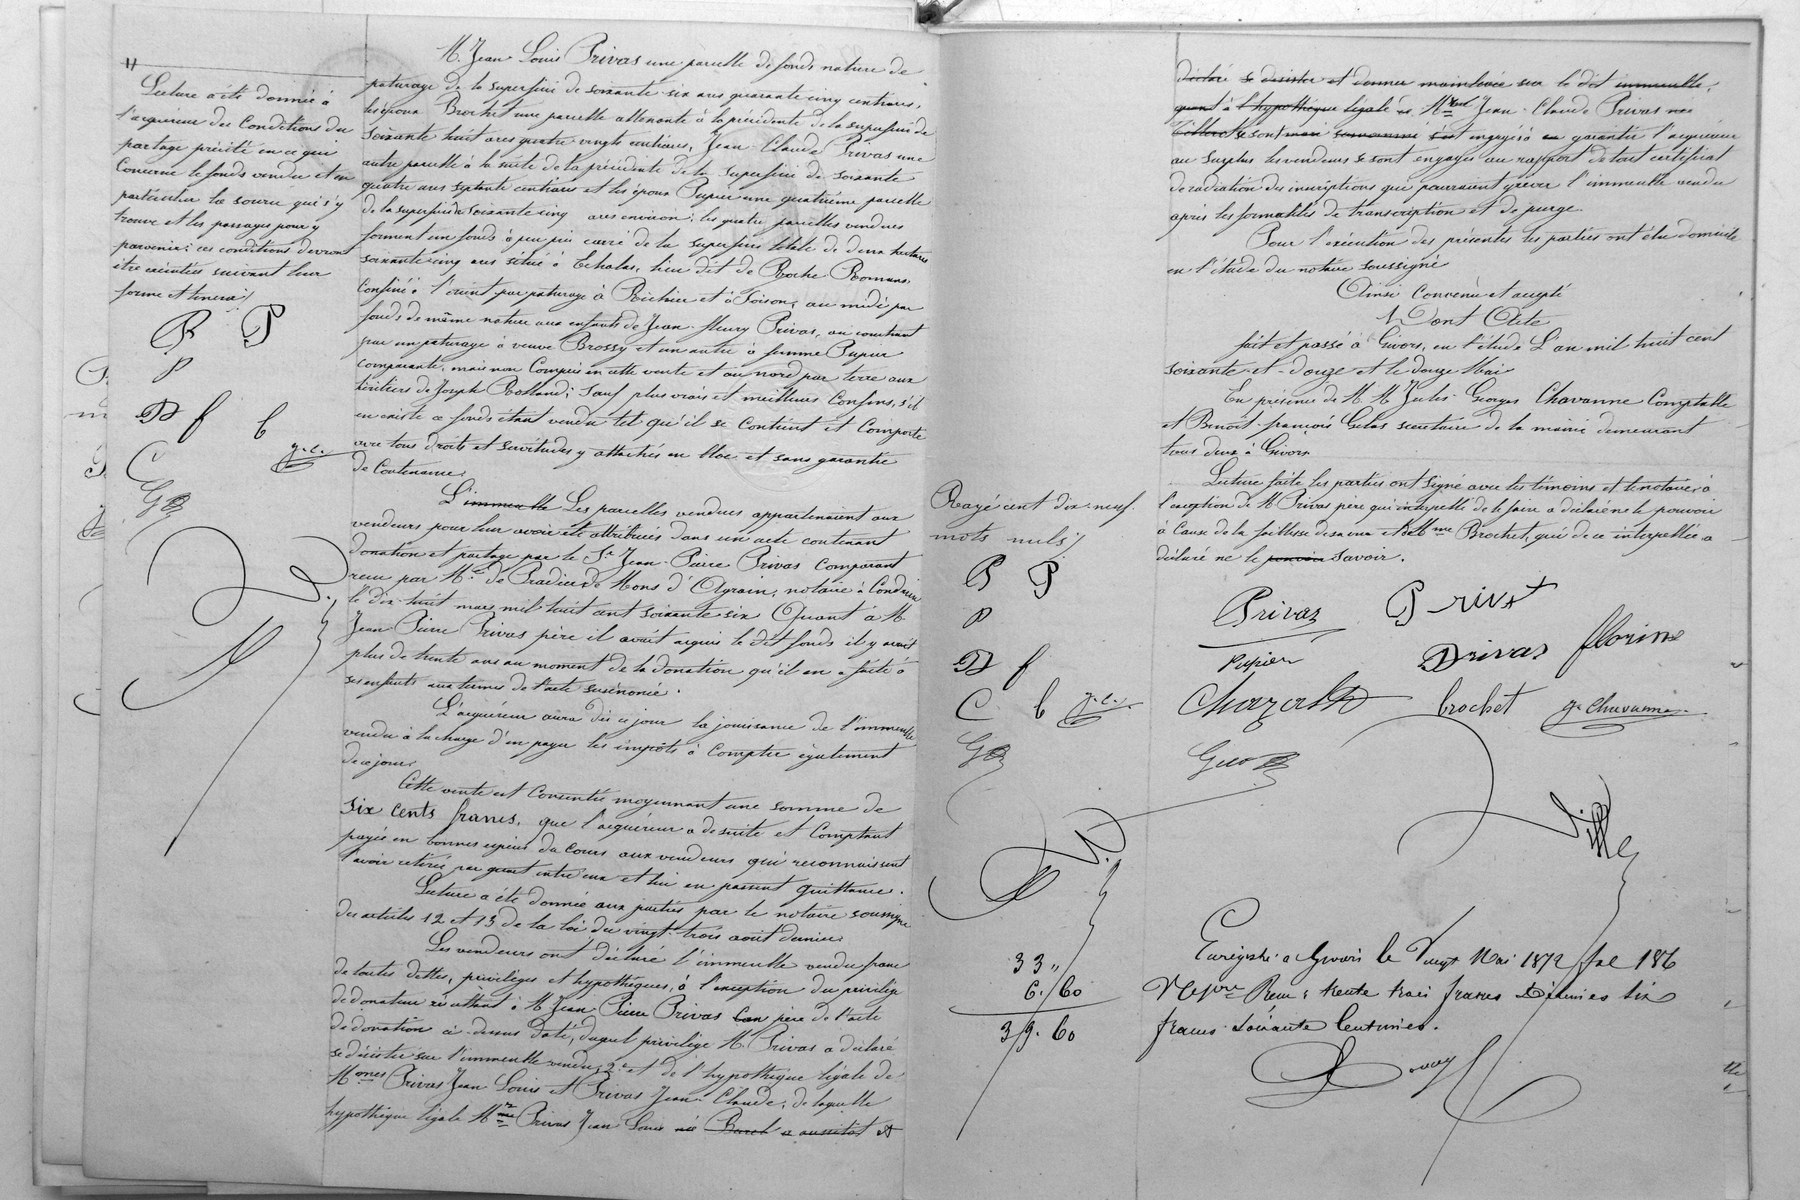 Lecture a été donnée à
l'acquéreur des Conditions du
partage précité en ce qui
Concerne le fonds vendu et en
particulier la source qui s'y
trouve et les passages pour y
parvenir; ces conditions devront
être exécutées suivant leur
forme et teneur /
P P
P
D f
C b g.c.
G
M. Jean Louis Privas une parcelle de fonds nature de
paturage de la superficie de soixante-six ares quarante cinq centiares,
les époux Brochet une parcelle attenante à la précédente de la superficie de
soixante huit ares quatre vingts centiares, Jean-Claude Privas une
autre parcelle à la suite de la précédente de la superficie de soixante
quatre ares septante centiares et les époux Pupier une quatrième parcelle
de la superficie de soixante cinq ares environ; les quatre parcelles vendues
forment un fonds à peu près carré de la superficie totale de deux hectares
soixante-cinq ares situé à Echalas, lieu dit de Roche Romans,
confiné à l'orient par paturage à Richier et à Soison, au midi par
fonds de même nature aux enfants de Jean-fleury Privas, au couchant
par un paturage à veuve Brossy et un autre à femme Pupier
comparante, mais non Compris en cette vente et au nord par terre aux
héritiers de Joseph Rolland; sauf plus vrais et meilleurs Confins, s'il
en existe ce fonds étant vendu tel qu'il se Contient et Comporte
avec tous droits et servitudes y attachés en bloc et sans garantie
de Contenance.
L'immeuble Les parcelles vendues appartiennent aux
vendeurs pour leur avoir été attribuées dans un acte contenant
donation et partage par le Sr Jean-Pierre Privas Comparant
reçu par Me de Pradier de Mons d'Agrain, notaire à Condrieu
le dix-huit mars mil huit cent soixante-six Quant à M.
Jean Pierre Privas père il avait acquis le dit fonds il y avait
plus de trente ans au moment de la donation qu'il en a faite à
ses enfants aux termes de l'acte susénoncé.
L'acquéreur aura dès ce jour la jouissance de l'immeuble
vendu à la charge d'en payer les impôts à Compter également
de ce jour.
Cette vente est Consentie moyennant une somme de
six cents francs, que l'acquéreur a de suite et Comptant
payée en bonnes espèces du Cours aux vendeurs qui reconnaissent
l'avoir retirée par quart entre eux et lui en passent quittance.
Lecture a été donnée aux parties par le notaire soussigné
des articles 12 et 13 de la loi du vingt-trois août dernier.
Les vendeurs ont déclaré l'immeuble vendu franc
de toutes dettes, privilèges et hypothèques, à l'exception du privilège
de donateur résultant à M. Jean Pierre Privas père de l'acte
de donation ci-dessus daté, duquel privilège M. Privas a déclaré
se désister sur l'immeuble vendu, 2° et de l'hypothèque légale de
Mmes Privas Jean Louis et Privas Jean-Claude; de laquelle
hypothèque légale Mme Privas Jean Louis née a aussitôt et
déclaré se désister et donner mainlevée sur le dit immeuble,
quant à l'hypothèque légale de Mme Jean-Claude Privas née
son mari susnommé s'est engagé à en garantir l'acquéreur
au surplus les vendeurs se sont engagés au rapport de tout certificat
de radiation des inscriptions que pourraient grever l'immeuble vendu
après les formalités de transcription et de purge
Pour l'exécution des présentes les parties ont élu domicile
en l'étude du notaire soussigné
Ainsi Convenu et accepté
Dont Acte
fait et passé à Givors, en l'étude L'an mil huit cent
soixante-et-douze et le douze Mai
En présence de M M Jules-Georges Chavanne Comptable
et Benoît-françois Gelas secrétaire de la mairie demeurant
tous deux à Givors
Lecture faite, les parties ont signé avec les témoins et le notaire à
l'exception de M. Privas père qui interpellé de le faire a déclaré ne le pouvoir
à Cause de la faiblesse de sa vue et de Mme Brochet, qui de ce interpellée a
déclaré ne le pouvoir savoir.
Rayé cent dix-neuf
mots nuls /
P P
P
D f
C b g.c.
G
Privas Privat
Pupier Privas florine
Chazal brochet g. chavanne
33 "
6. 60
39. 60
Enregistré à Givors le Vingt Mai 1872 fol 186
Reçu trente trois francs Décimes six
francs soixante Centimes.